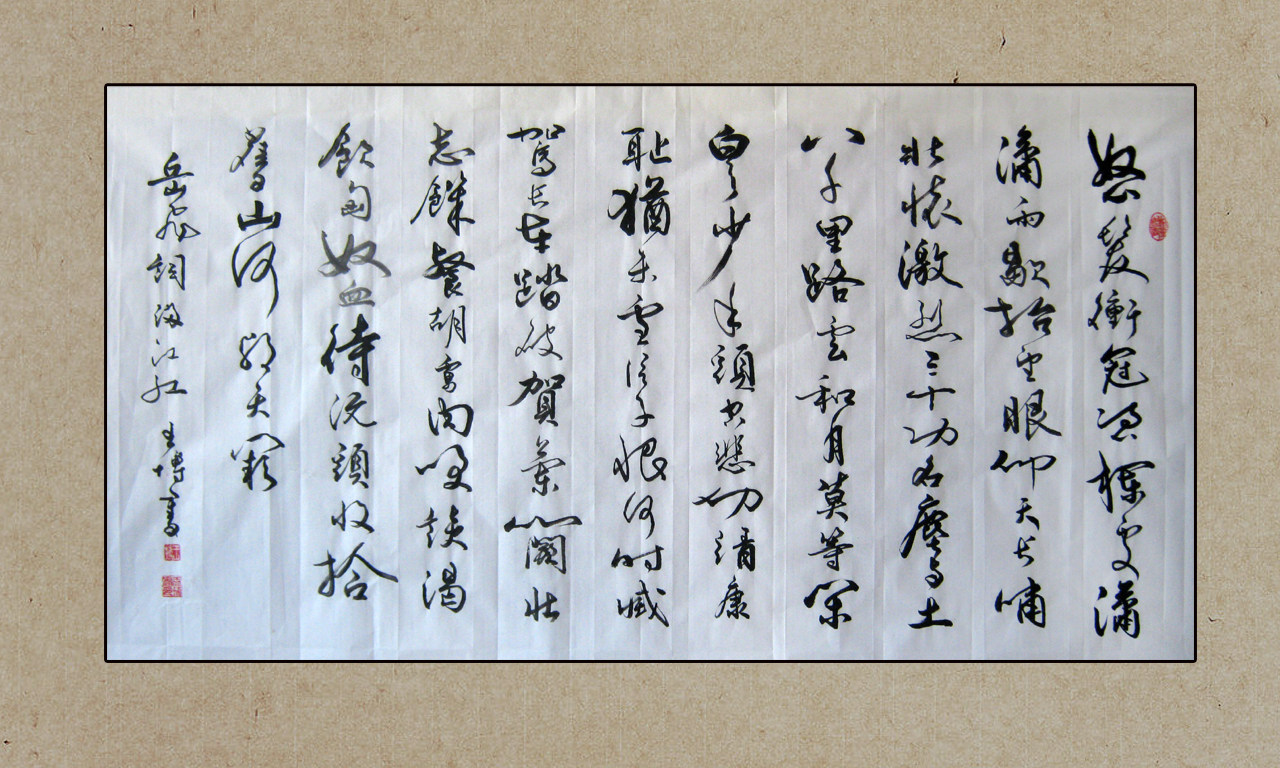 怒髮衝冠憑欄處瀟
瀟雨歇抬望眼仰天長嘯
壯懷激烈三十功名塵與土
八千里路雲和月莫等閑
白了少年頭空悲切靖康
耻猶未雪臣子恨何時滅
駕長車踏破賀蘭山闕壯
志飢餐胡虜肉笑談渴
飲匈奴血待從頭收拾
舊山河朝天闕
岳飛詞滿江紅 王博書